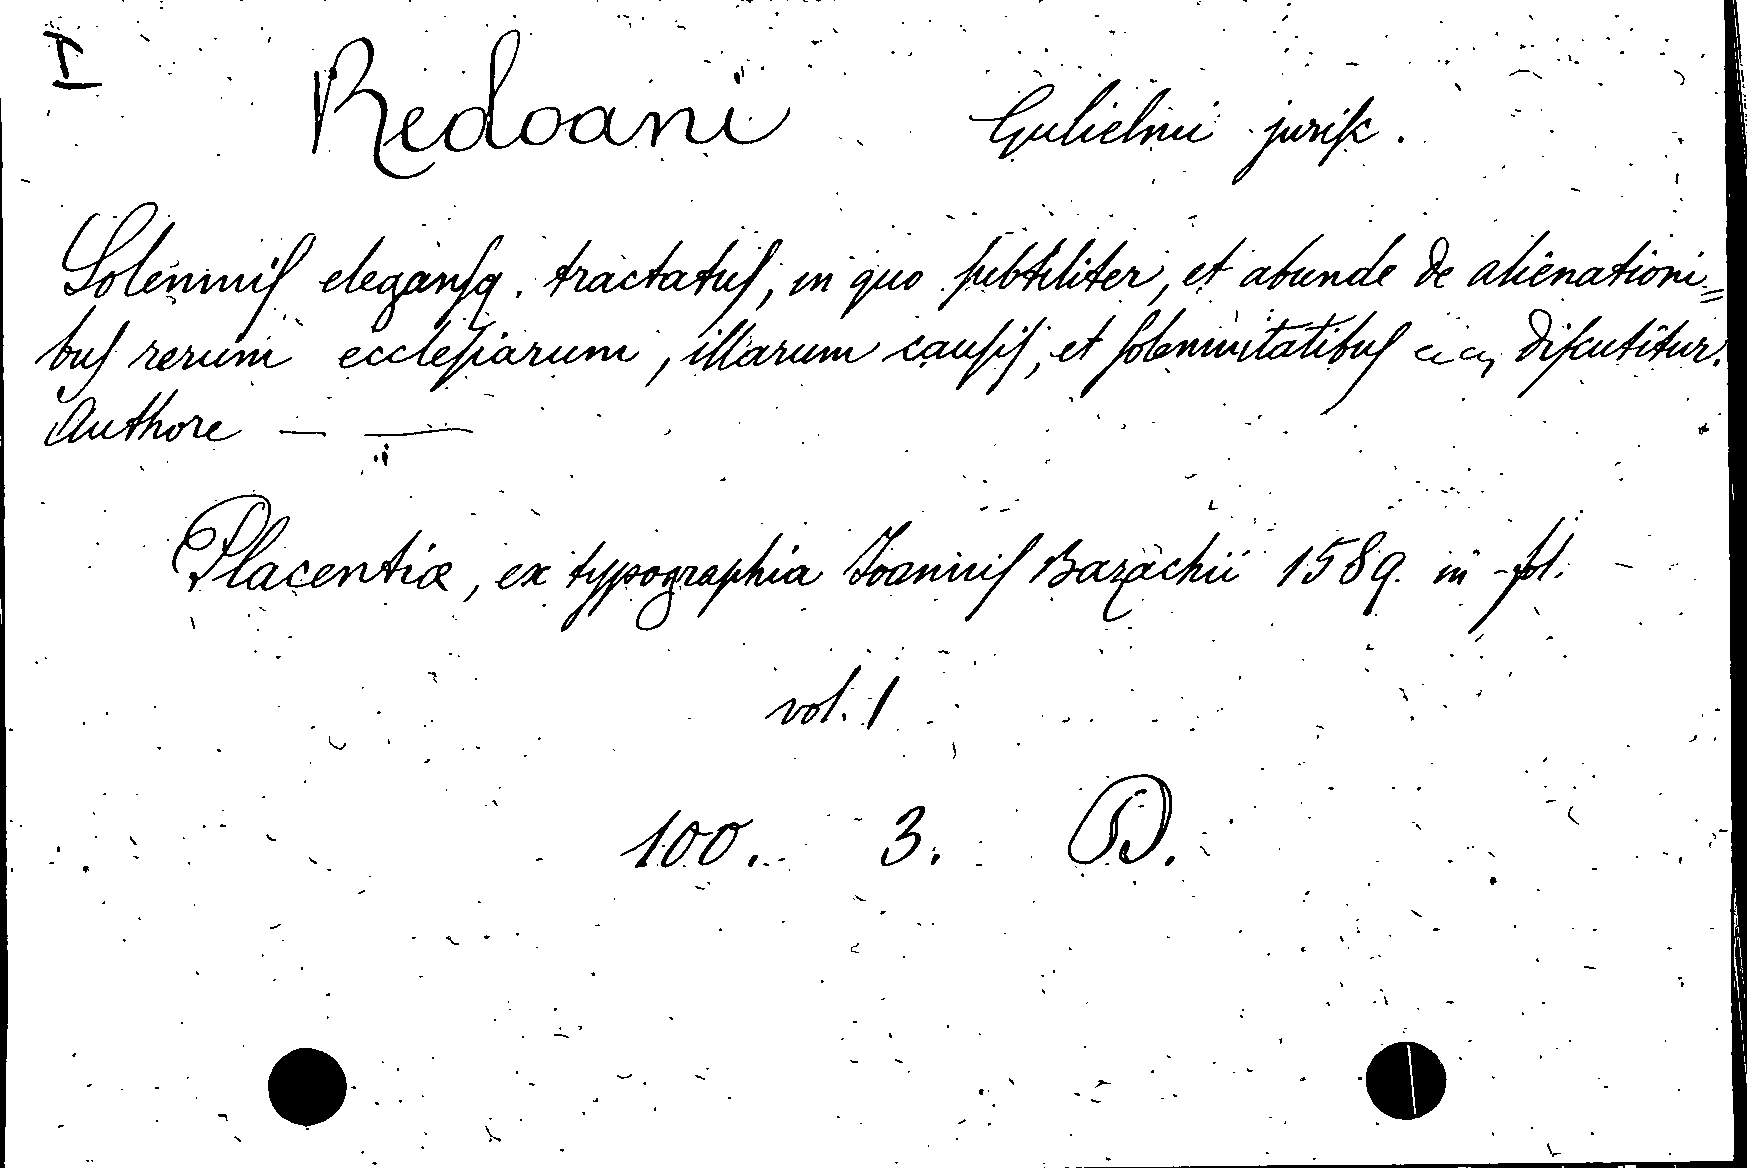 I
Redoani Gulielmi jurisc.
Solemnis elegansq. tractatus, in quo subtiliter, et abunde de alienationi=
bus rerum ecclesiarum, illarum causis, et solemnitatibus discutitur.
Authore — —
Placentiæ, ex typographia Joannis Bazachii 1589. in fol.
vol. 1
100. 3. D.